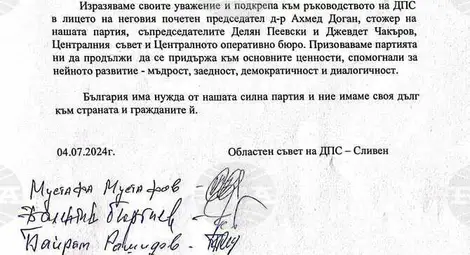 Изразяваме своите уважение и подкрепа към ръководството на ДПС
в лицето на неговия почетен председател д-р Ахмед Доган, стожер на
нашата партия, съпредседателите Делян Пеевски и Джевдет Чакъров,
Централния съвет и Централното оперативно бюро. Призоваваме партията
ни да продължи да се придържа към основните ценности, спомогнали за
нейното развитие - мъдрост, заедност, демократичност и диалогичност.
България има нужда от нашата силна партия и ние имаме своя дълг
към страната и гражданите ѝ.
04.07.2024г. Областен съвет на ДПС – Сливен
Мустафа Мустафов -
Байрам Рашидов -